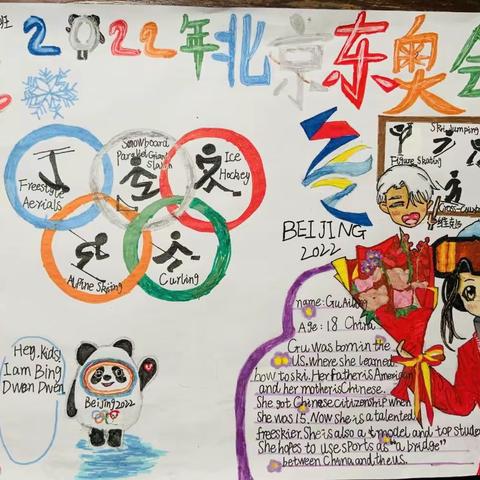 班
2022年北京东奥会
Freestyle
Aerials
Snowboard
Parallel Giant
Slalom
Ice
Hockey
Alpine Skiing
Curling
Ski Jumping
Figure Skating
BEIJING
2022
Hey, kids!
I am Bing
Dwen Dwen
Beijing2022
name: Gu Ailing
Age: 18 China
Gu was born in the
US. where she learned
how to ski. Her Father is American
and her mother is Chinese.
She got Chinese citizenship when
She was 15. Now she is a talented
freeskier. She is also a model and top student
She hopes to use sports as "a bridge"
between China and the US.